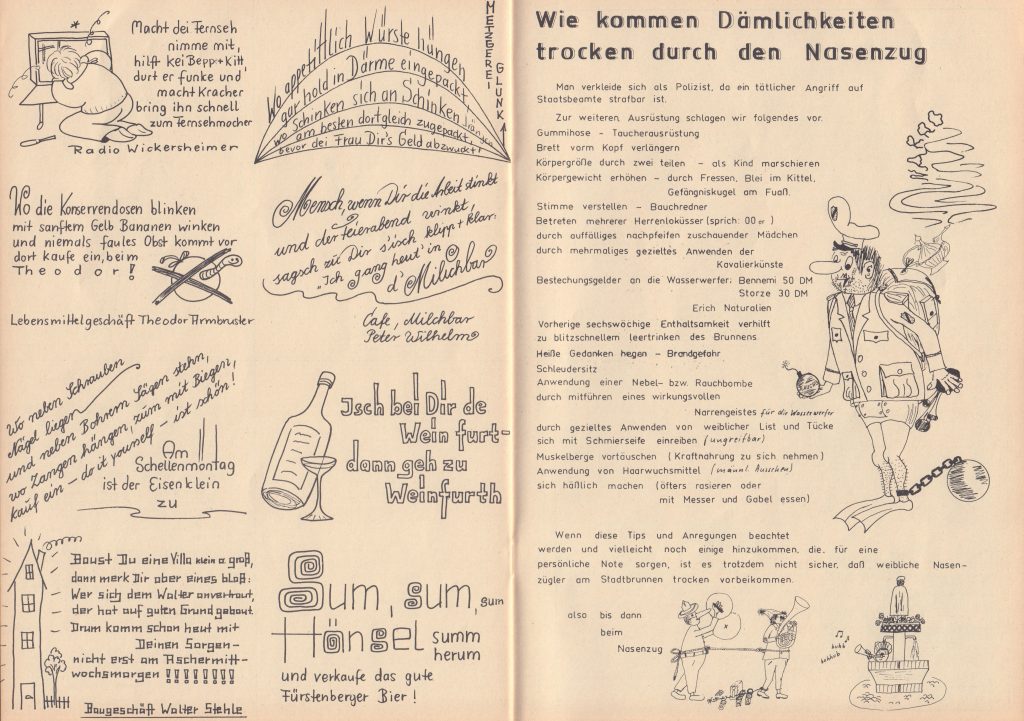 Macht dei Fernseh
nimme mit,
hilft kei Bepp + Kitt
durt er funke und
macht Kracher
bring ihn schnell
zum Fernsehmacher
Radio Wickersheimer
METZGEREI GLUNK
Wo appetittlich Würste hängen
gar hold in Därme eingepackt,
wo Schinken sich an Schinken drängen
am besten dortgleich zugepackt,
bevor dei Frau Dir's Geld abzwackt!
Wo die Konservendosen blinken
mit sanftem Gelb Bananen winken
und niemals faules Obst kommt vor
dort kaufe ein, beim
Theodor!
Lebensmittelgeschäft Theodor Armbruster
Mensch, wenn Dir die Arbeit stinkt
und der Feierabend winkt,
sagsch zu Dir s'isch klipp + klar:
"Ich gang heut' in
d' Milchbar
Cafe, Milchbar
Peter Wilhelm
Wo neben Schrauben
Nägel liegen
und neben Bohrern Sägen stehn,
wo Zangen hängen, zum mit Biegen,
kauf ein – do it yourself – ist schön!
Am
Schellenmontag
ist der Eisenklein
zu
Isch bei Dir de
Wein furt-
dann geh zu
Weinfurth
Baust Du eine Villa klein o. groß,
dann merk Dir aber eines bloß:
Wer sich dem Walter anvertraut,
der hat auf guten Grund gebaut.
Drum komm schon heut mit
Deinen Sorgen-
nicht erst am Aschermitt-
wochsmorgen !!!!!!!!!
Baugeschäft Walter Stehle
Sum, sum, sum
Hänsel summ
herum
und verkaufe das gute
Fürstenberger Bier!
Wie kommen Dämlichkeiten
trocken durch den Nasenzug
Man verkleide sich als Polizist, da ein tätlicher Angriff auf
Staatsbeamte strafbar ist.
Zur weiteren, Ausrüstung schlagen wir folgendes vor.
Gummihose - Taucherausrüstung
Brett vorm Kopf verlängern
Körpergröße durch zwei teilen - als Kind marschieren
Körpergewicht erhöhen - durch Fressen, Blei im Kittel,
Gefängiskugel am Fuaß.
Stimme verstellen - Bauchredner
Betreten mehrerer Herrenloküsser (sprich: 00er)
durch auffälliges nachpfeifen zuschauender Mädchen
durch mehrmaliges gezieltes Anwenden der
Kavalierkünste
Bestechungsgelder an die Wasserwerfer; Bennemi 50 DM
Storze 30 DM
Erich Naturalien
Vorherige sechswöchige Enthaltsamkeit verhilft
zu blitzschnellem leertrinken des Brunnens
Heiße Gedanken hegen - Brandgefahr
Schleudersitz
Anwendung einer Nebel- bzw. Rauchbombe
durch mitführen eines wirkungsvollen
Narrengeistes für die Wasserwerfer
durch gezieltes Anwenden von weiblicher List und Tücke
sich mit Schmierseife einreiben (ungreifbar)
Muskelberge vortäuschen (Kraftnahrung zu sich nehmen)
Anwendung von Haarwuchsmittel (männl. Aussehen)
sich häßlich machen (öfters rasieren oder
mit Messer und Gabel essen)
NARRO
Wenn diese Tips und Anregungen beachtet
werden und vielleicht noch einige hinzukommen, die, für eine
persönliche Note sorgen, ist es trotzdem nicht sicher, daß weibliche Nasen-
zügler am Stadtbrunnen trocken vorbeikommen.
also bis dann
beim
Nasenzug